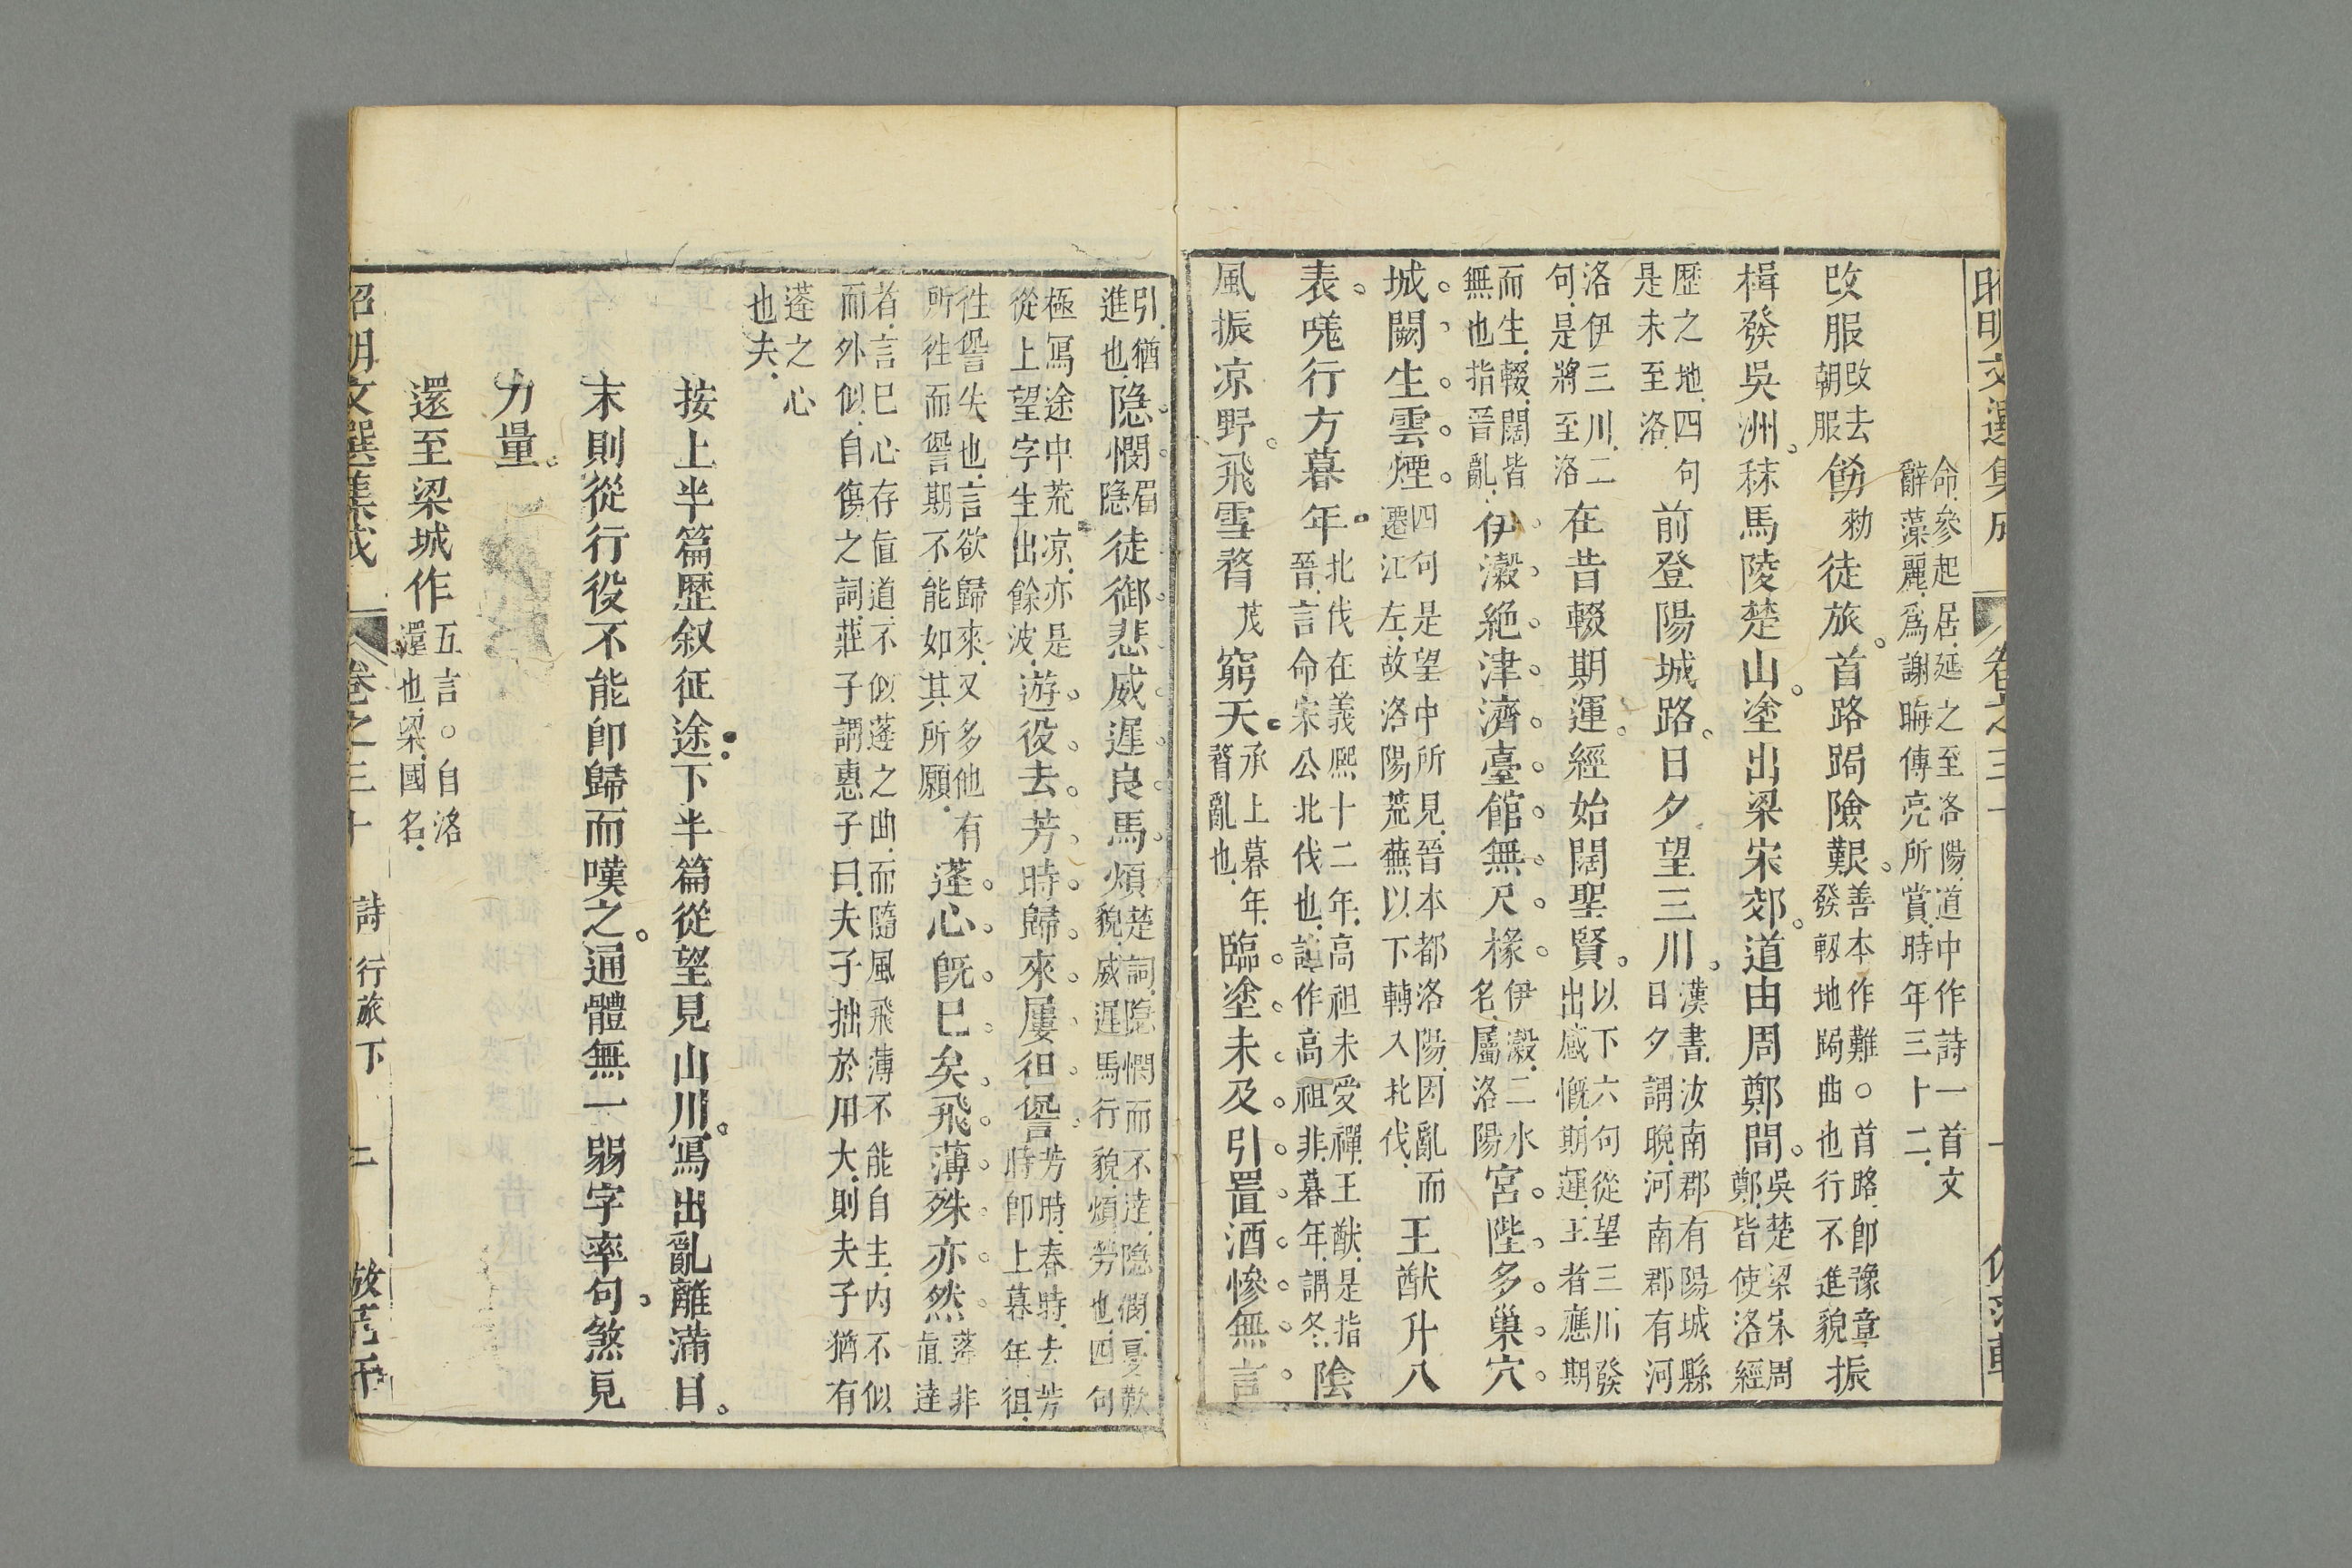 昭明文選集成 卷之三十 一
命參起居延之至洛陽道中作詩一首文
辭藻麗爲謝晦傅亮所賞時年三十二
改服改去朝服飭勑徒旅首路跼險艱善本作難○首路卽豫章發軔地跼曲也行不進貌振
楫發吳洲秣馬陵楚山塗出梁宋郊道由周鄭間吳楚梁宋周鄭皆使洛經
歷之地四句是未至洛前登陽城路日夕望三川漢書汝南郡有陽城縣日夕謂晚河南郡有河
洛伊三川二句是將至洛在昔輟期運經始闊聖賢以下六句從望三川發出感慨期運王者應期
而生輟闊皆無也指晉亂伊瀔絕津濟臺館無尺椽伊瀔二水名屬洛陽宮陛多巢穴
城闕生雲煙四句是望中所見晉本都洛陽因亂而遷江左故洛陽荒蕪以下轉入北伐王猷升八
表嘆行方暮年北伐在義熙十二年高祖未受禪王猷是指晉言命宋公北伐也誼作高祖非暮年謂冬陰
風振凉野飛雪瞀茂窮天承上暮年瞀亂也臨塗未及引置酒慘無言
引猶進也隐憫眉隐徒御悲威遲良馬煩楚詞隐憫而不達隐憫憂歎貌威遲馬行貌煩勞也四句
極寫途中荒凉亦是從上望字生出餘波遊役去芳時歸來屢徂諐芳時春時去芳時卽上暮年徂
徃諐失也言欲歸來又多他有所徃而諐期不能如其所願蓬心旣已矣飛薄殊亦然蓬非直達
者言已心存直道不似蓬之曲而隨風飛薄不能自主内不似而外似自傷之詞莊子謂惠子曰夫子拙於用大則夫子猶有
蓬之心也夫
按上半篇歷叙征途下半篇從望見山川寫出亂離滿目
末則從行役不能卽歸而嘆之通體無一弱字率句煞見
力量
還至梁城作五言○自洛還也梁國名
昭明文選集成 卷之三十 詩 行旅下 二